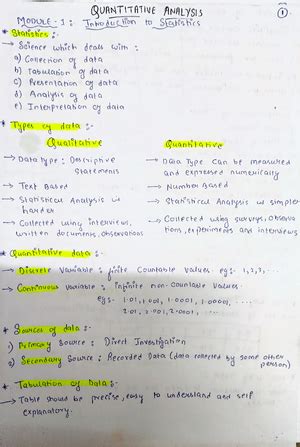 QUANTITATIVE ANALYSIS
①
MODULE - 1 : Introduction to Statistics
* Statistics :-
→ Science which deals with :
a) Collection of data
b) Tabulation of data
c) Presentation of data
d) Analysis of data
e) Interpretation of data
* Types of data :-
Qualitative Quantitative
→ Data type : Descriptive statements → Data type can be measured and expressed numerically
→ Text Based → Number Based
→ Statistical Analysis is harder → Statistical Analysis is simpler
→ Collected using interviews, written documents, observations → Collected using surveys, observations, experiments and interviews
* Quantitative data :-
→ Discrete Variable : finite countable values eg:- 1,2,3,...
→ Continuous Variable : infinite non-countable values
eg:- 1.01, 1.001, 1.0001, 1.00001, ...
2.01, 2.001, 2.0001, ....
* Sources of data :-
1) Primary Source : Direct Investigation
2) Secondary Source : Recorded Data (data collected by some other person)
* Tabulation of Data :-
→ Table should be precise, easy to understand and self
explanatory.